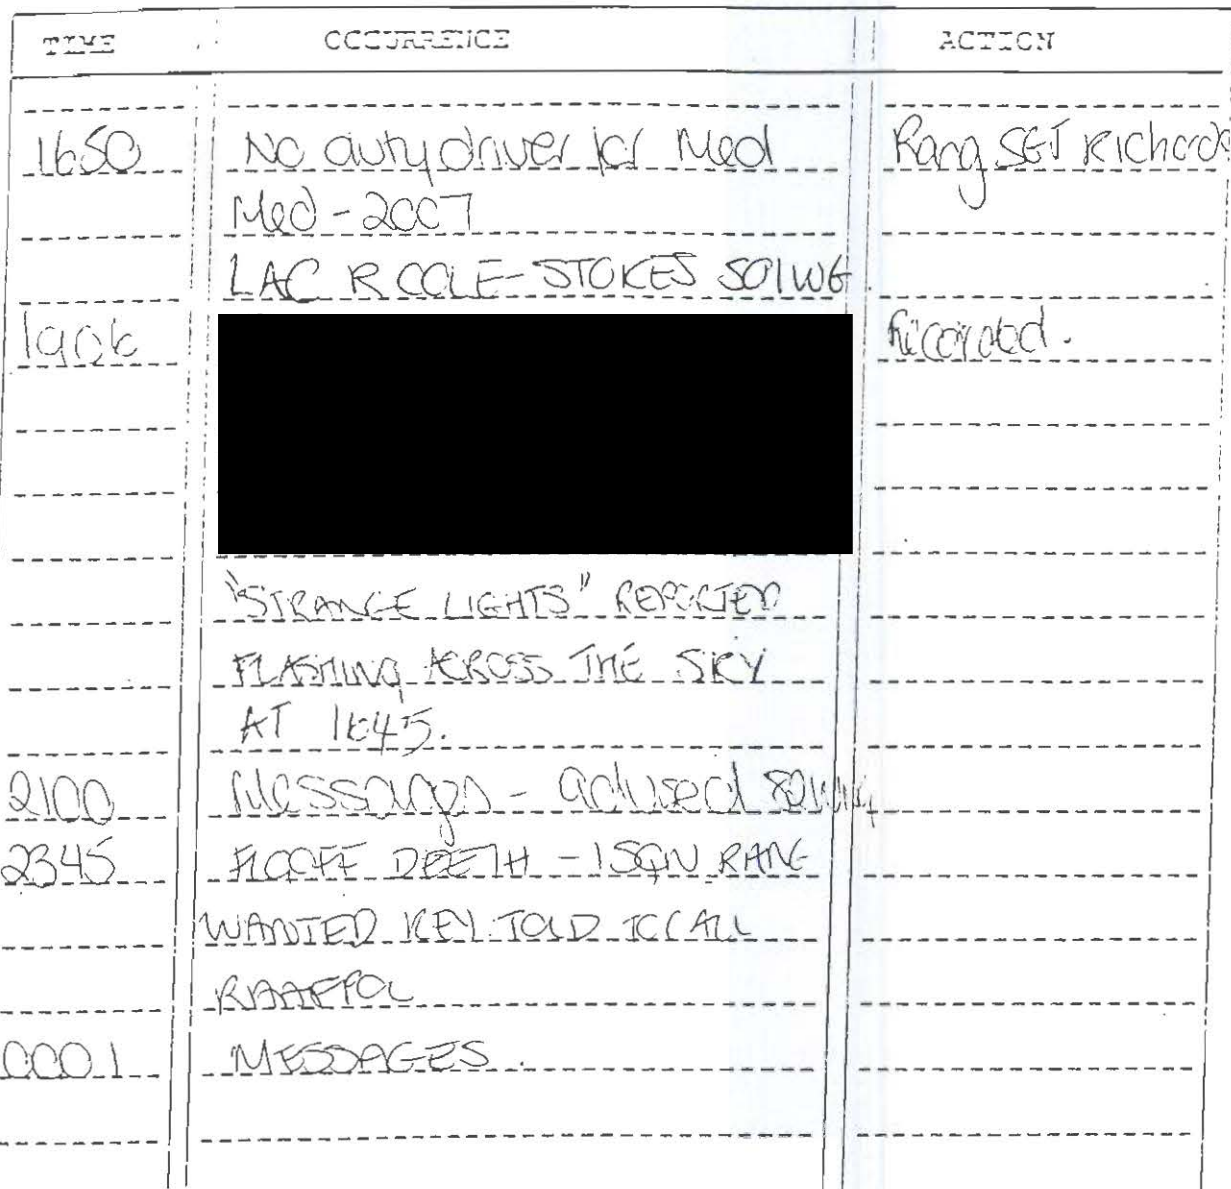 TIME OCCURRENCE ACTION
1650 No duty driver for Med Rang SGT Richards
Med - 2007
LAC R COLE-STOKES 501WG
1906 Recorded.
"STRANGE LIGHTS" REPORTED
FLASHING ACROSS THE SKY
AT 1645.
2100 Messages - advised 501WG
2345 FLGOFF DEETH - 1SQN RANG
WANTED KEY. TOLD TO CALL
RAAFPOL
0001 MESSAGES.